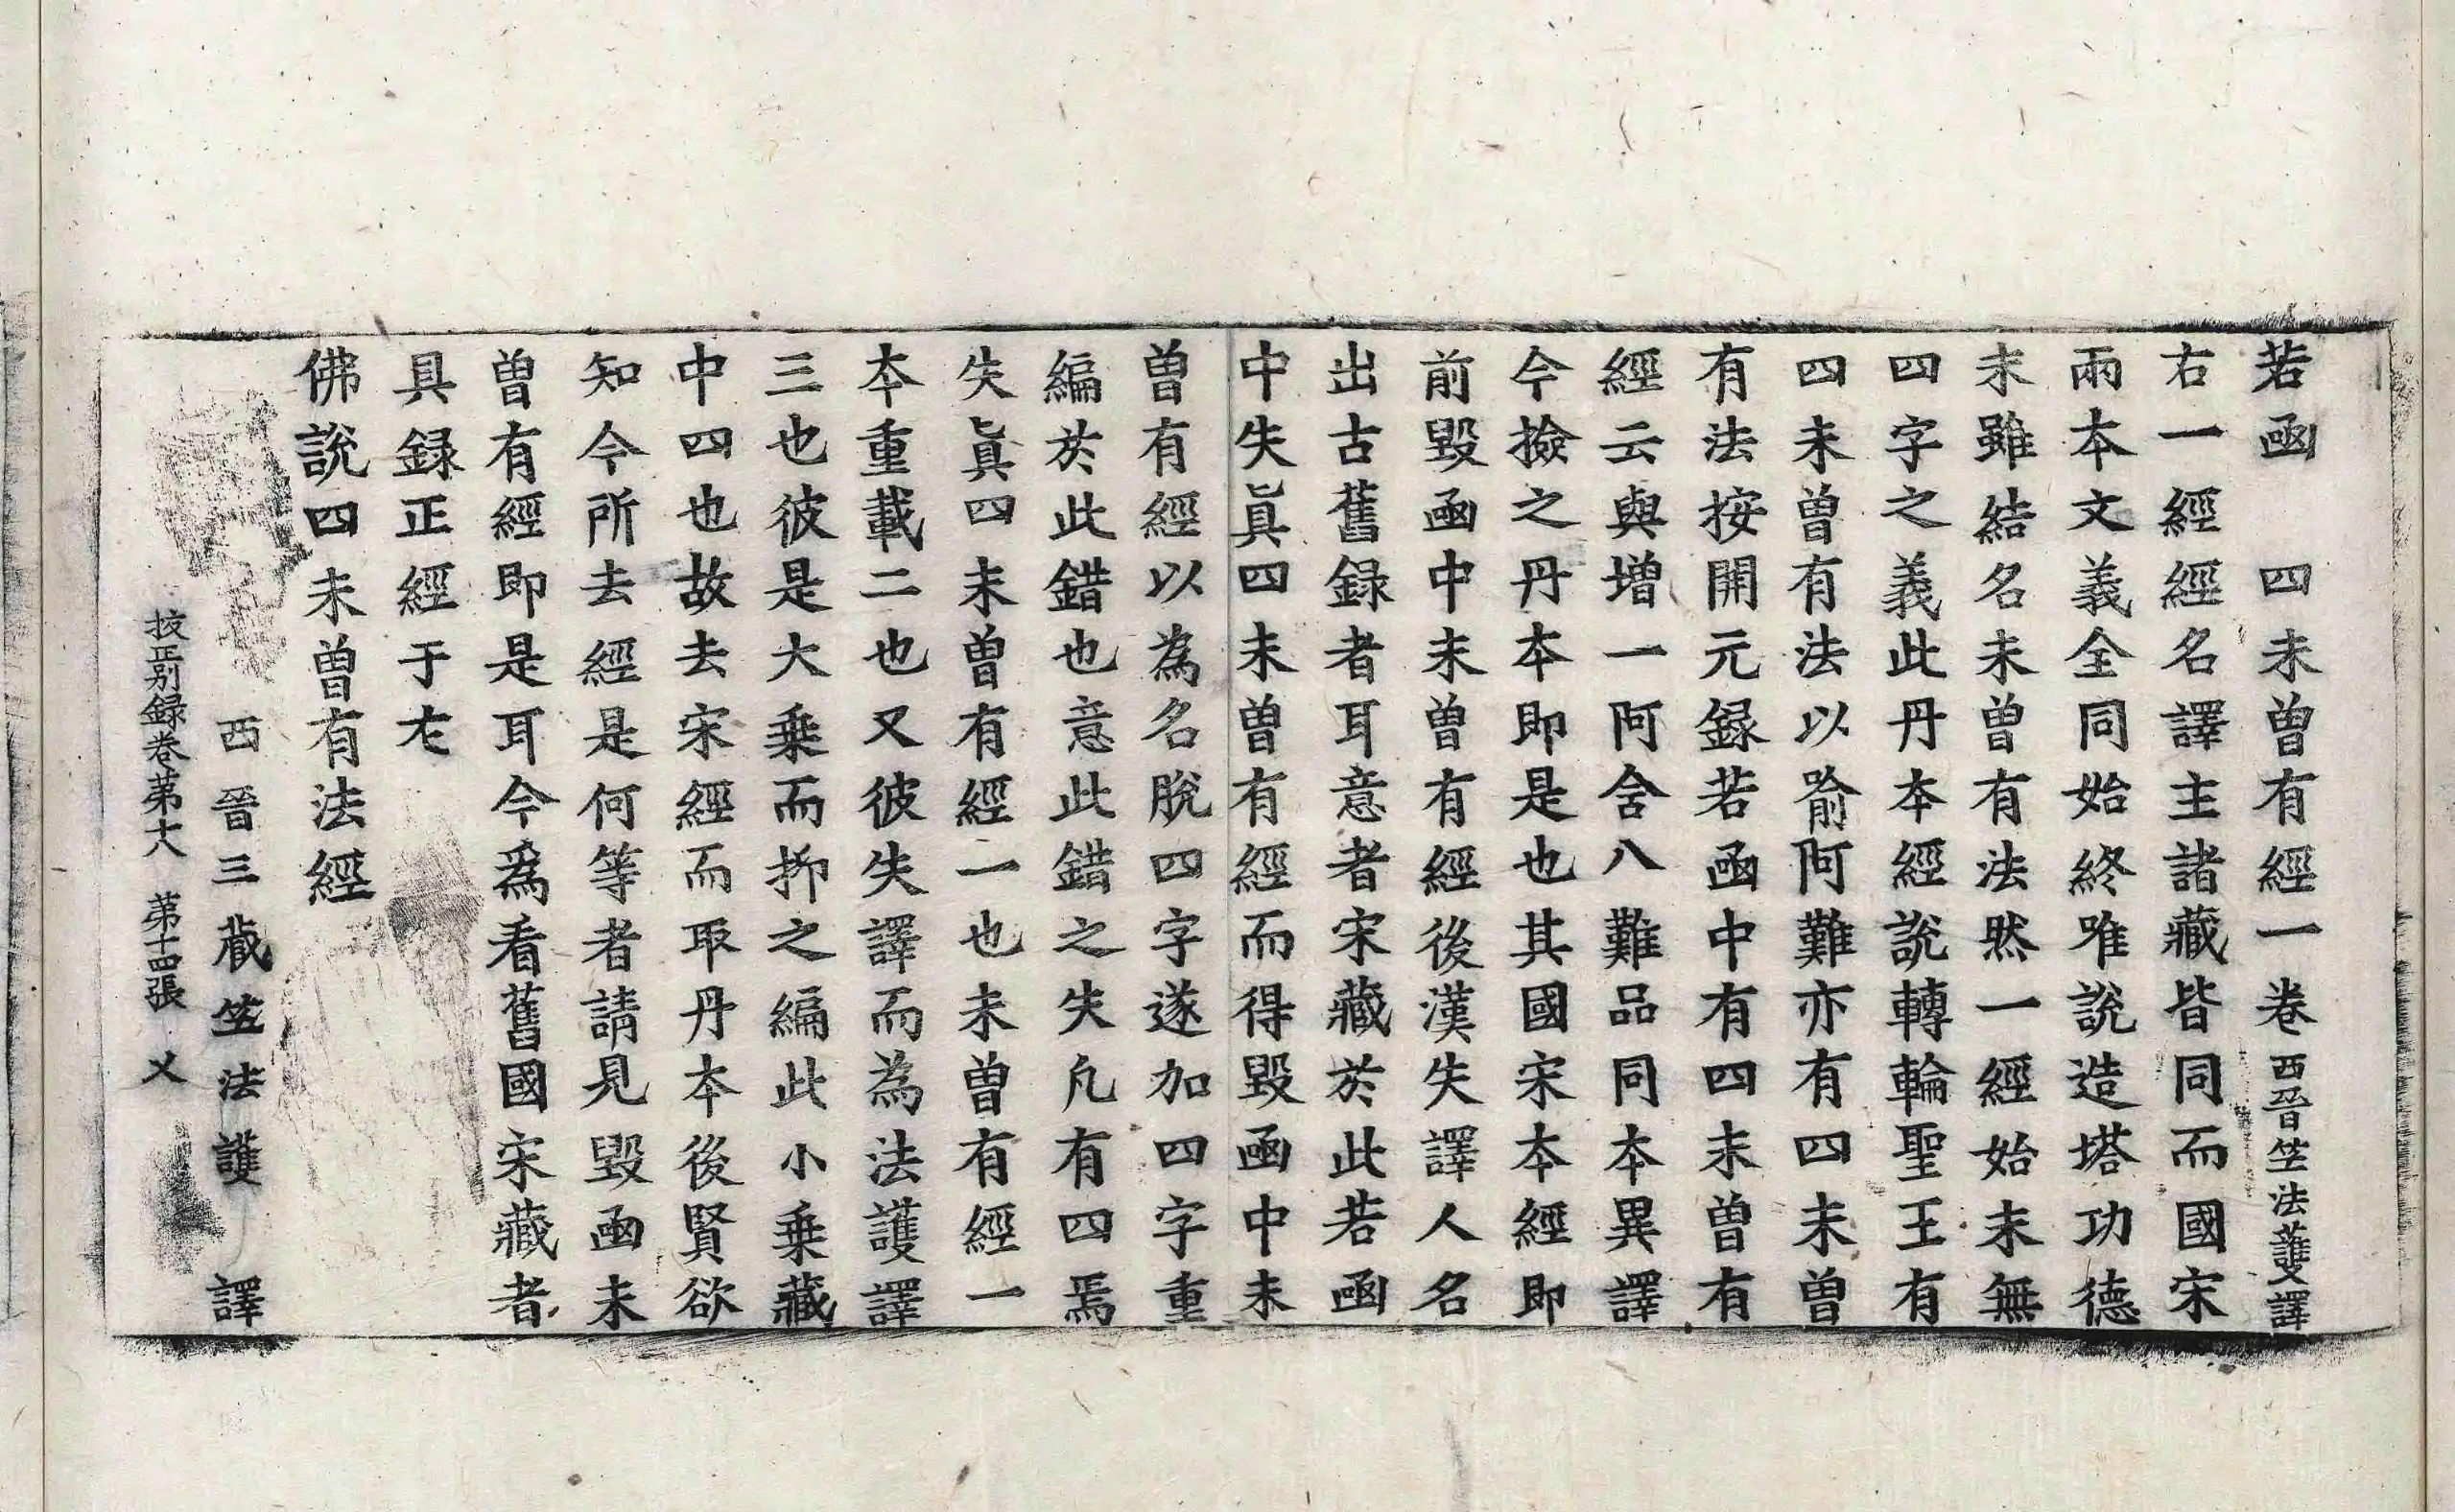 若函　四未曾有經一卷西晉竺法護譯
右一經經名譯主諸藏皆同而國宋
兩本文義全同始終唯說造塔功德
末雖結名未曾有法然一經始末無
四字之義此丹本經說轉輪聖王有
四未曾有法以喻阿難亦有四未曾
有法按開元録若函中有四未曾有
經云與增一阿含八難品同本異譯
今撿之丹本即是也其國宋本經即
前毀函中未曾有經後漢失譯人名
出古舊録者耳意者宋藏於此若函
中失眞四未曾有經而得毀函中未
曾有經以為名脫四字遂加四字重
編於此錯也意此錯之失凡有四焉
失眞四未曾有經一也未曾有經一
本重載二也又彼失譯而為法護譯
三也彼是大乗而抑之編此小乗藏
中四也故去宋經而取丹本後賢欲
知今所去經是何等者請見毀函未
曾有經即是耳今爲看舊國宋藏者
具録正經于左
佛說四未曾有法經
西晉三藏竺法護　譯
挍正别録卷第六　第十四張　乂